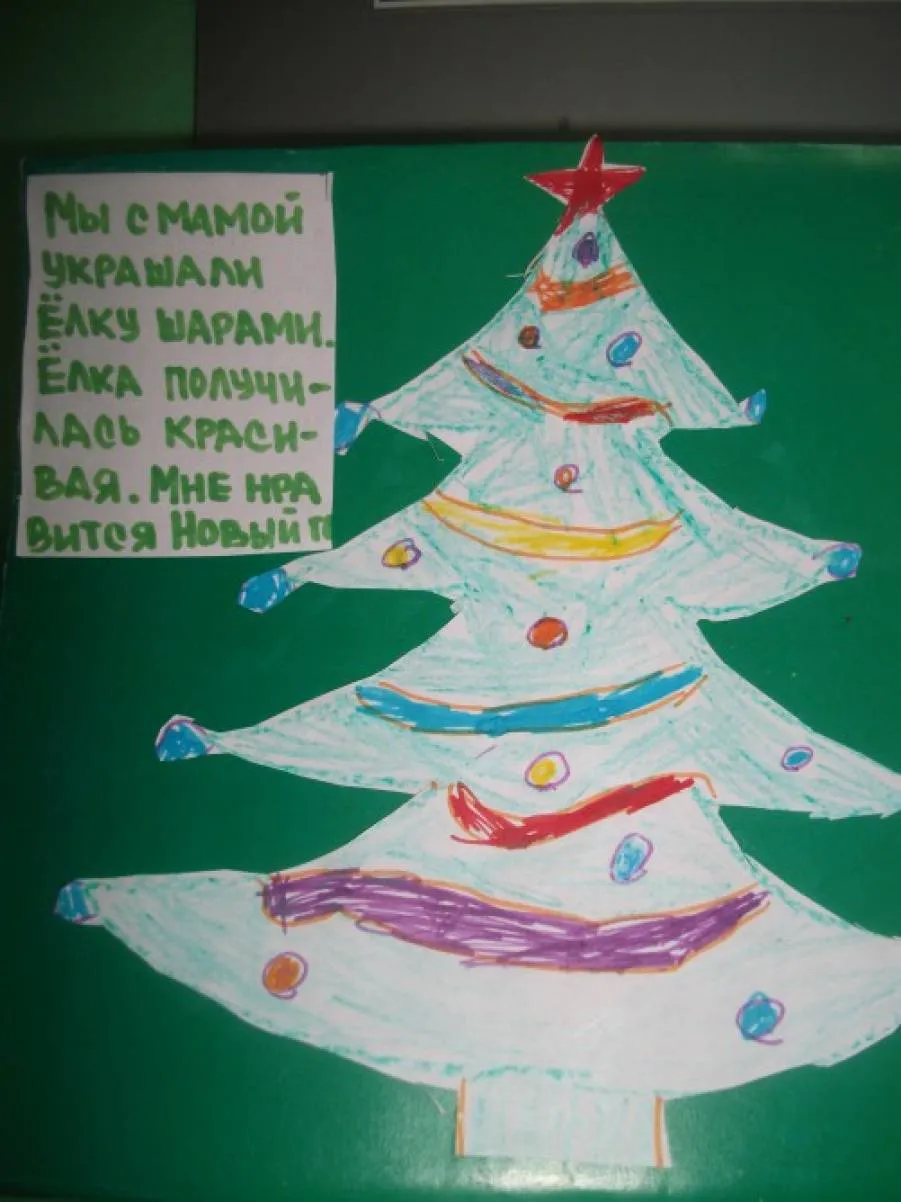 Мы с мамой
украшали
Ёлку шарами.
Ёлка получи-
лась краси-
вая. Мне нра
вится Новый г